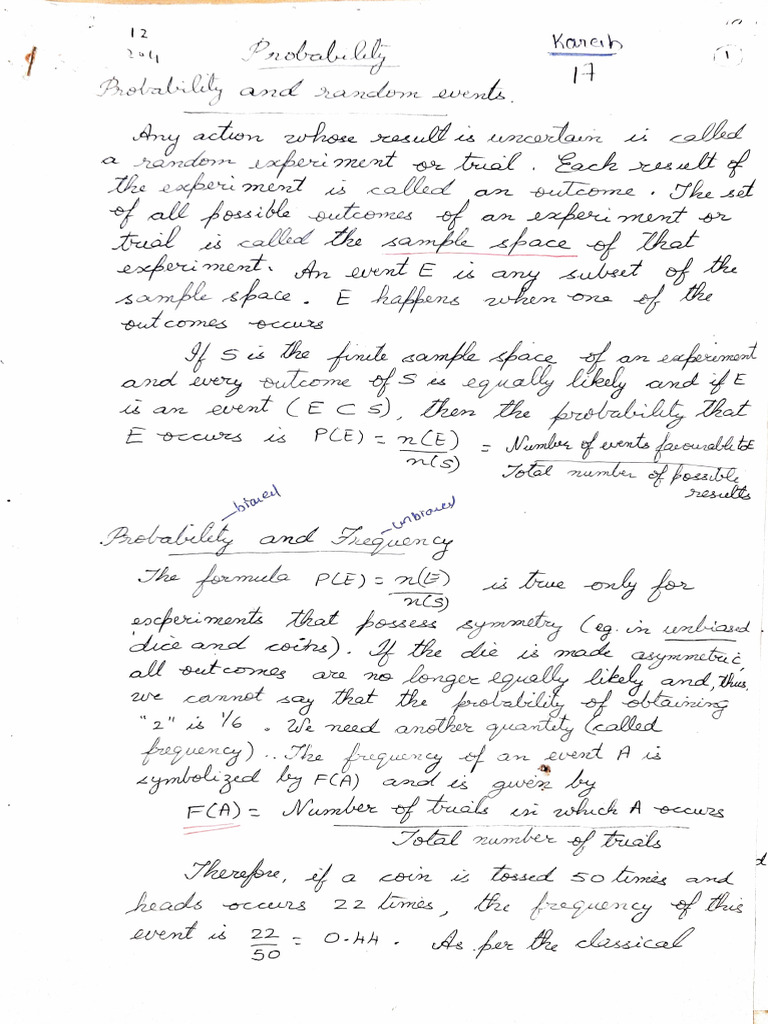 12
2011
Probability
Karan
17
1
Probability and random events.
Any action whose result is uncertain is called
a random experiment or trial. Each result of
the experiment is called an outcome. The set
of all possible outcomes of an experiment or
trial is called the sample space of that
experiment. An event E is any subset of the
sample space. E happens when one of the
outcomes occurs
If S is the finite sample space of an experiment
and every outcome of S is equally likely and if E
is an event (E ⊂ S), then the probability that
E occurs is P(E) = n(E)/n(S) = Number of events favourable to E / Total number of possible
results
– biased
– unbiased
Probability and Frequency
The formula P(E) = n(E)/n(S) is true only for
experiments that possess symmetry (eg. in unbiased
dice and coins). If the die is made asymmetric,
all outcomes are no longer equally likely and, thus,
we cannot say that the probability of obtaining
"2" is 1/6. We need another quantity (called
frequency).. The frequency of an event A is
symbolized by F(A) and is given by
F(A) = Number of trials in which A occurs
Total number of trials
Therefore, if a coin is tossed 50 times and
heads occurs 22 times, the frequency of this
event is 22/50 = 0.44. As per the classical